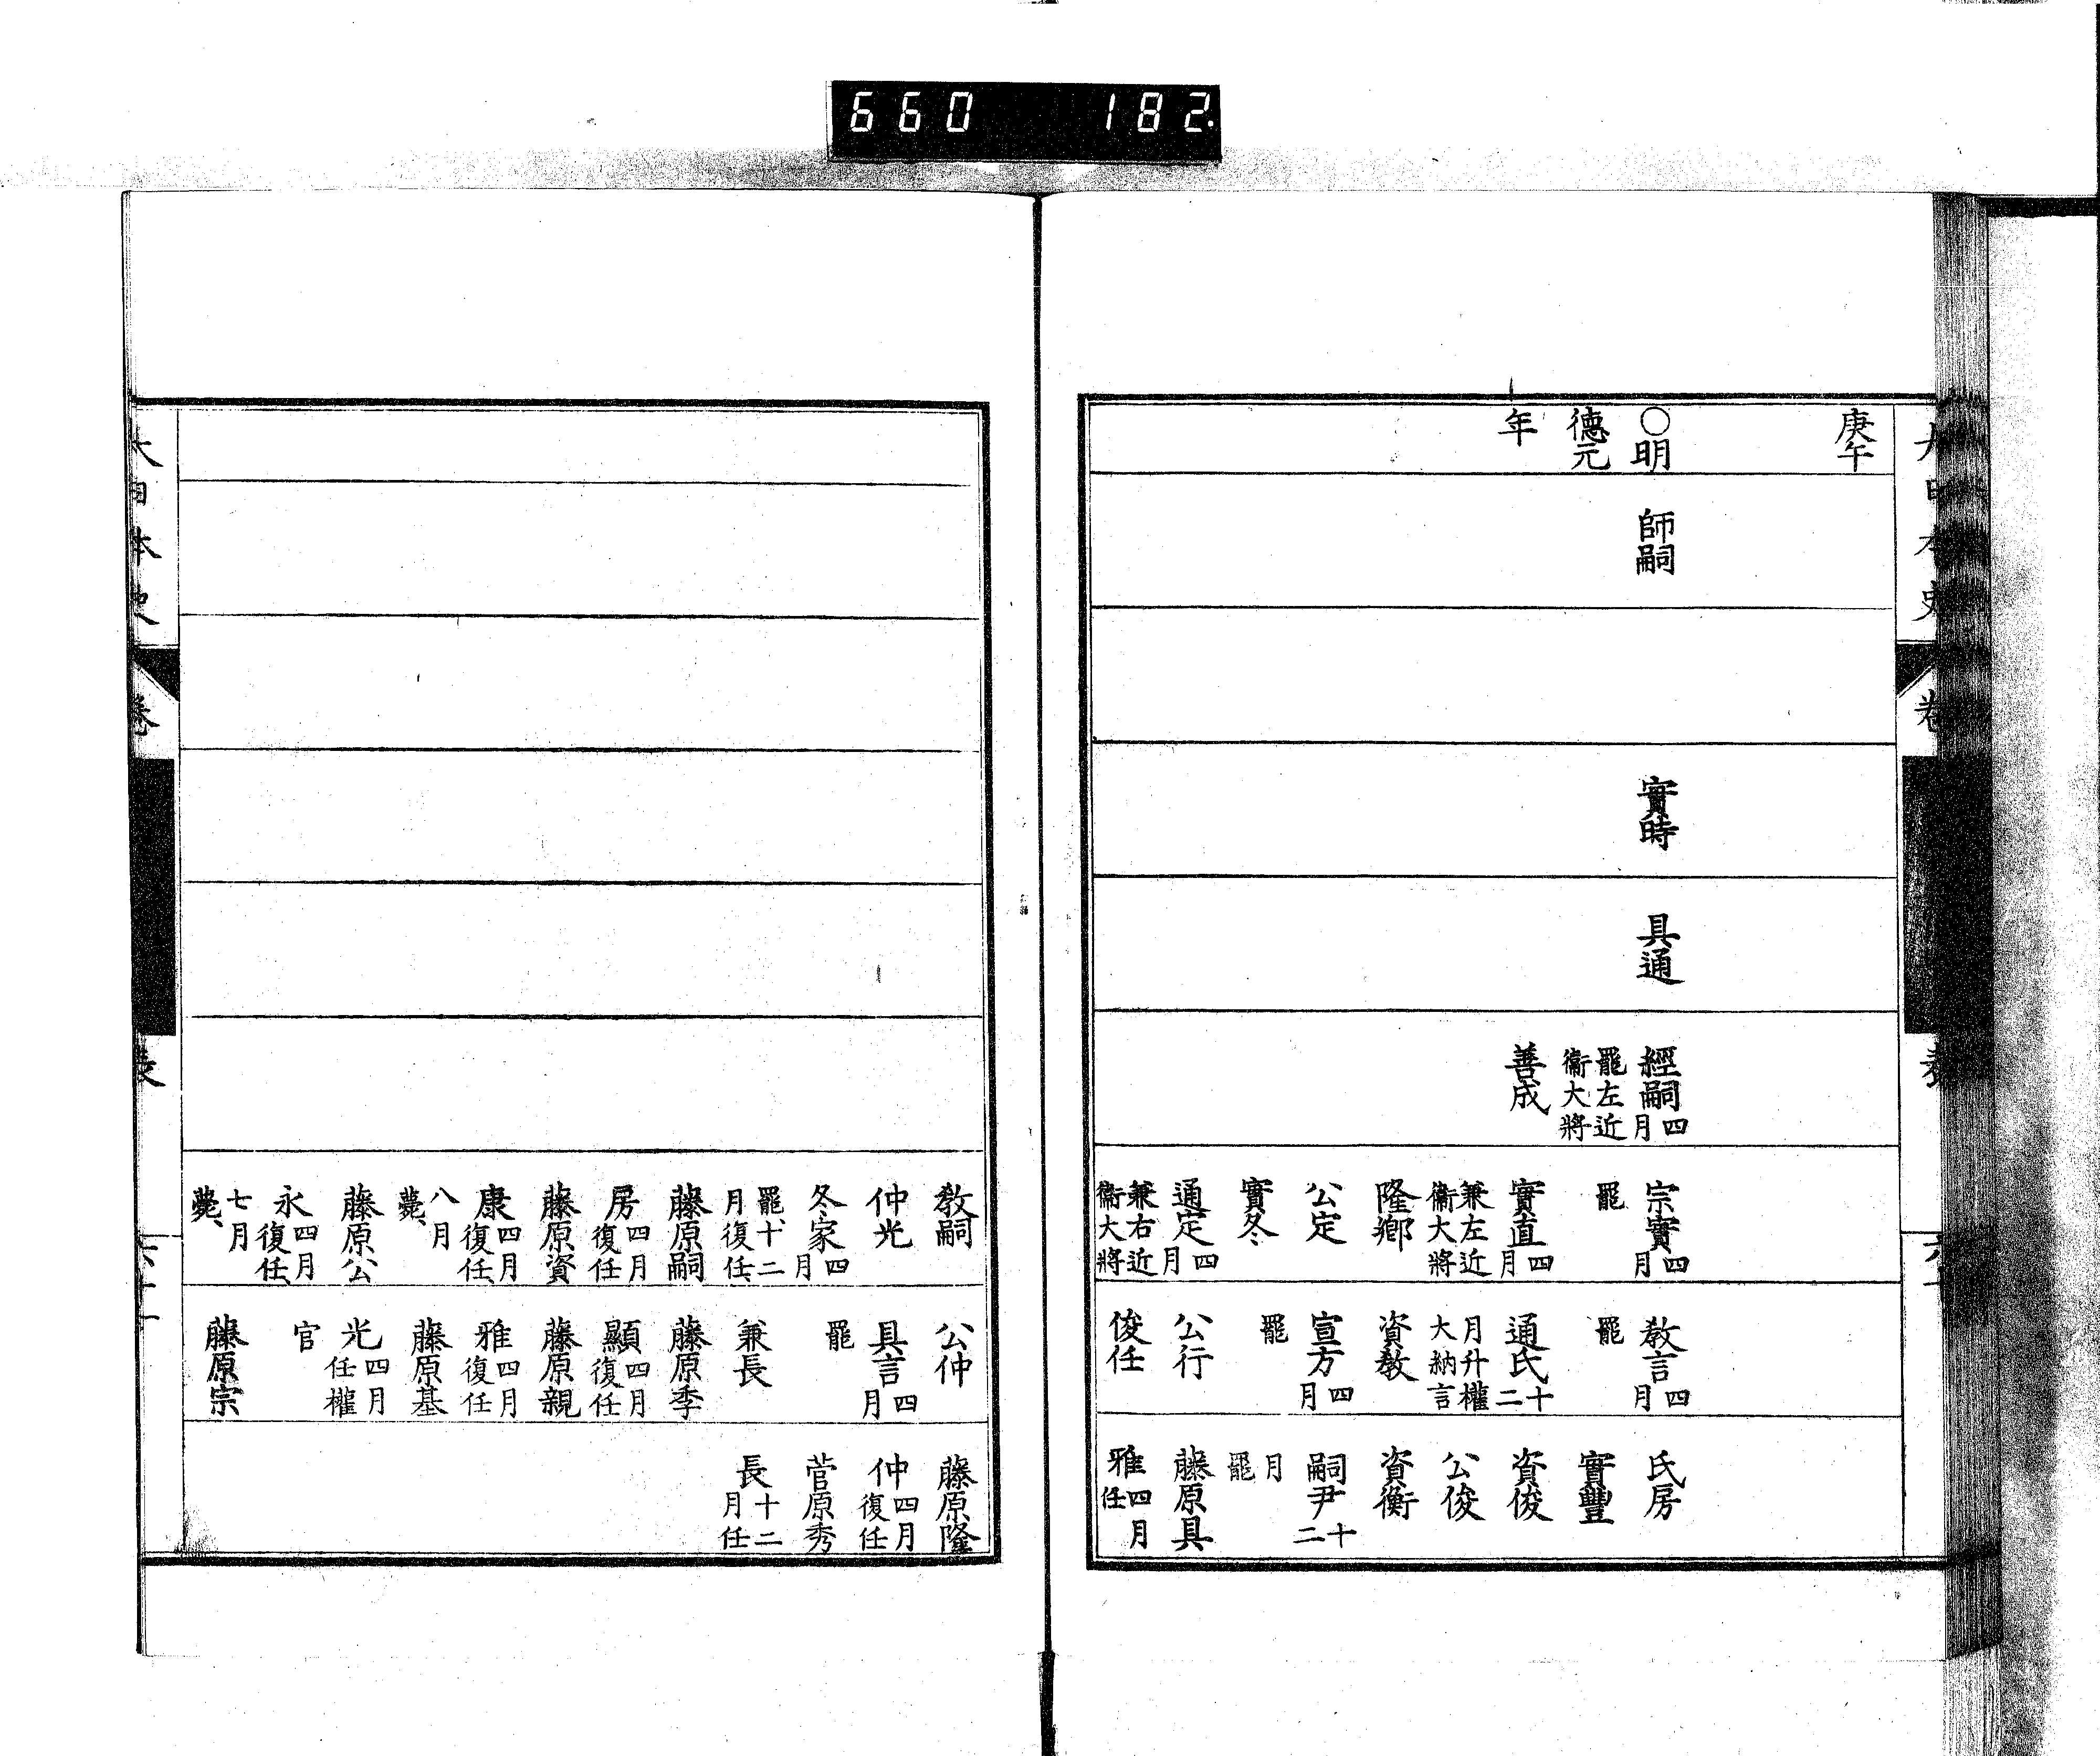 660 182
大日本史
卷
表
庚午
〇明
德元
年
師嗣
實時
具通
經嗣四月
罷左近衞大將
善成
宗實四月
罷
實直四月
兼左近衞大將
隆鄕
公定
實冬
通定四月
兼右近衞大將
教言四月
罷
通氏十二
月升權大納言
資教
宣方四月
罷
公行
俊任
氏房
實豐
資俊
公俊
資衡
嗣尹十二
月罷
藤原具
雅四月任
教嗣
仲光
冬家四月
罷、十二月復任、
藤原嗣
房四月復任
藤原資
康四月復任、
八月薨、
藤原公
永四月復任、
七月薨、
公仲
具言四月
罷
兼長
藤原季
顯四月復任
藤原親
雅四月復任
藤原基
光四月任權
官
藤原宗
藤原隆
仲四月復任
菅原秀
長十二月任
大日本史
卷
表